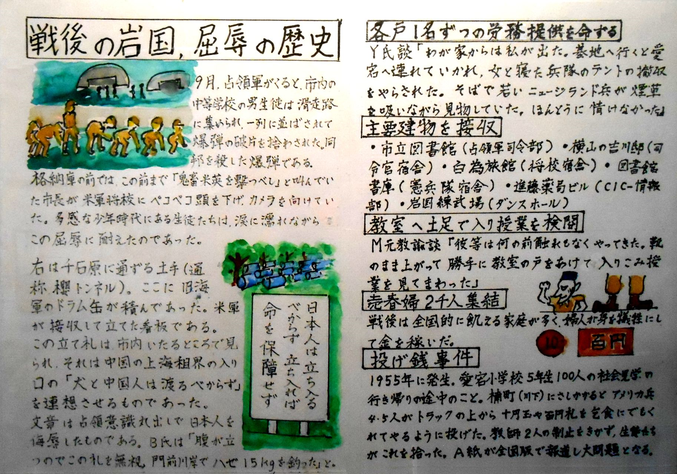 戦後の岩国,屈辱の歴史
9月、占領軍がくると、市内の
中等学校の男生徒は滑走路
に集められ、一列に並ばされて
爆弾の破片を拾わされた。同
部を殺した爆弾である。
格納庫の前では、この前まで「鬼畜米英を撃つべし」と叫んでい
た市長が米軍将校にペコペコ頭を下げ、カメラを向けてい
た。多感な少年時代にある生徒たちは、涙に濡れながら
この屈辱に耐えたのであった。
右は千石原に通ずる土手(通
称、櫻トンネル)。ここに旧海
軍のドラム缶が積んであった。米軍
が接収して立てた看板である。
この立て札は、市内いたるところで見
られ、それは中国の上海租界の入り
口の「犬と中国人は渡るべからず」
を連想させるものであった。
文章は占領意識丸出しで日本人を
侮辱したものである。B氏は「腹が立
つのでこの札を無視、門前川岸でハゼ15kgを釣った」と。
日本人は立ち入る
べからず 立ち入れば
命を保障せず
各戸1名ずつの労務提供を命ずる
Y氏談「わが家からは私が出た。基地へ行くと愛
宕へ連れていかれ、女と寝た兵隊のテントの掃除
をやらされた。そばで若いニュージランド兵が煙草
を吸いながら見物していた。ほんとうに情けなかった」
主要建物を接収
・市立図書館(占領軍司令部)・横山の吉川邸(司
令官宿舎)・白為旅館(将校宿舎)・図書館
書庫(憲兵隊宿舎)・進藤薬局ビル(CIC-情報
部)・岩国練武場(ダンスホール)
教室へ土足で入り授業を検閲
M元教諭談「彼等は何の前触れもなくやってきた。靴
のまま上がって勝手に教室の戸をあけて、入りこみ授
業を見てまわった」
売春婦2千人集結
戦後は全国的に飢える家庭が多く、婦人が身を犠牲にし
て金を稼いだ。
10
百円
投げ銭事件
1955年に発生。愛宕小学校5年生100人の社会見学の
行き帰りの途中のこと。棟町(川下)にさしかかるとアメリカ兵
4・5人がトラックの上から十円玉や百円札を乞食にでもく
れてやるように投げた。教師2人の制止をきかず、生徒たち
がこれを拾った。A紙が全国版で報道し大問題となる。